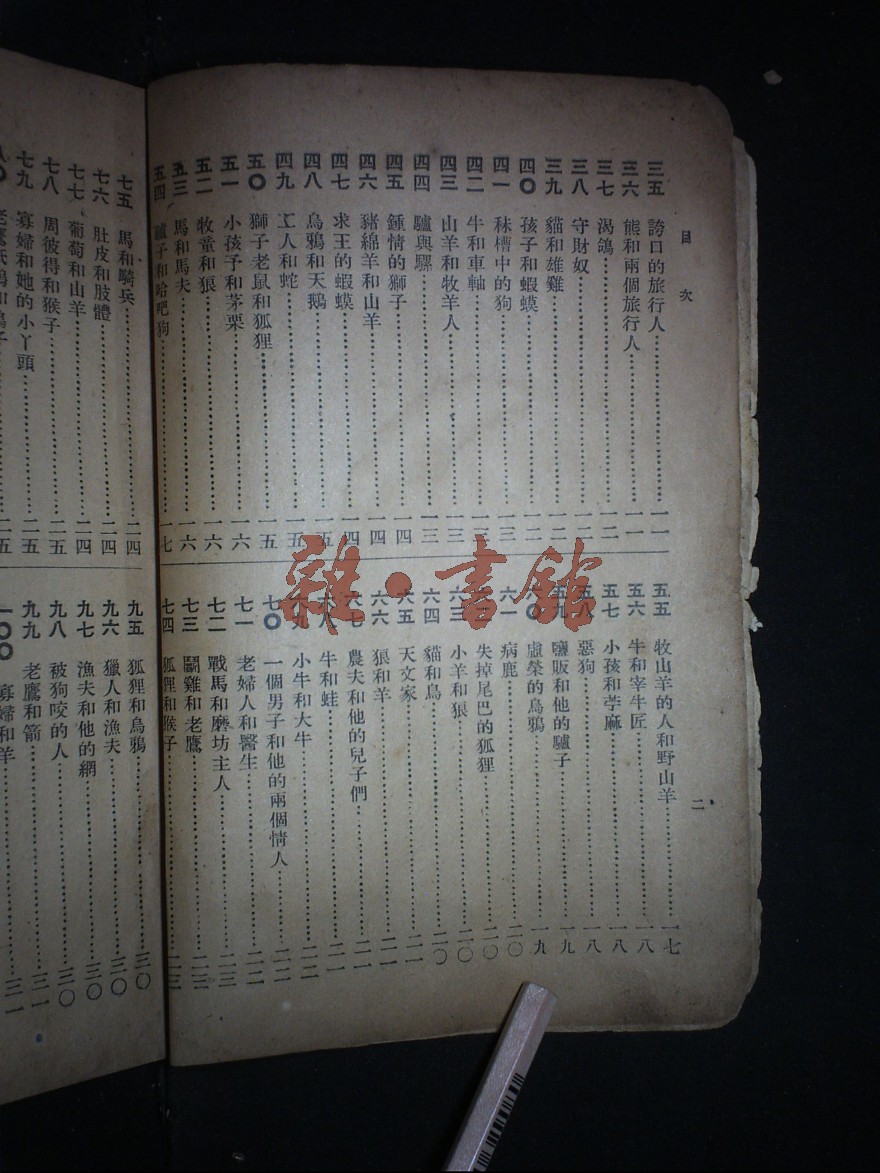 目次
二
三五 誇口的旅行人 一一
三六 熊和兩個旅行人 一一
三七 渴鴿 一二
三八 守財奴 一二
三九 貓和雄雞 一二
四〇 孩子和蝦蟆 一二
四一 秣槽中的狗 一三
四二 牛和車軸
四三 山羊和牧羊人 一三
四四 驢與騾 一三
四五 鍾情的獅子 一四
四六 豬綿羊和山羊 一四
四七 求王的蝦蟆 一四
四八 烏鴉和天鵝 一五
四九 工人和蛇 一五
五〇 獅子老鼠和狐狸 一五
五一 小孩子和茅栗 一六
五二 牧童和狼 一六
五三 馬和馬夫 一六
五四 驢子和哈吧狗 一七
五五 牧山羊的人和野山羊 一七
五六 牛和宰牛匠 一八
五七 小孩和苧麻 一八
五八 惡狗 一八
五九 鹽販和他的驢子 一九
六〇 虛榮的烏鴉 一九
六一 病鹿 二〇
失掉尾巴的狐狸 二〇
六三 小羊和狼 二〇
六四 貓和鳥 二〇
六五 天文家 二一
六六 狼和羊 二一
六七 農夫和他的兒子們 二一
六八 牛和蛙 二一
六九 小牛和大牛 二二
七〇 一個男子和他的兩個情人 二二
七一 老婦人和醫生 二二
七二 戰馬和磨坊主人 二三
七三 鬭雞和老鷹 二三
七四 狐狸和猴子 二三
七五 馬和騎兵 二四
七六 肚皮和肢體 二四
七七 葡萄和山羊 二四
七八 周彼得和猴子 二五
七九 寡婦和她的小丫頭 二五
八〇 二五
九五 狐狸和烏鴉 三〇
九六 獵人和漁夫 三〇
九七 漁夫和他的網 三〇
九八 被狗咬的人 三〇
九九 老鷹和箭 三一
一〇〇 寡婦和羊 三一
雜·書館